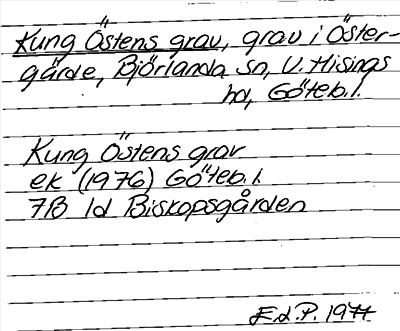 Kung Östens grav, grav i Öster-
gärde, Björlanda sn, V. Hisings
hd, Göteb. l.
Kung Östens grav
ek (1976) Göteb. l.
7B 1d Biskopsgården
E.d.P. 1977